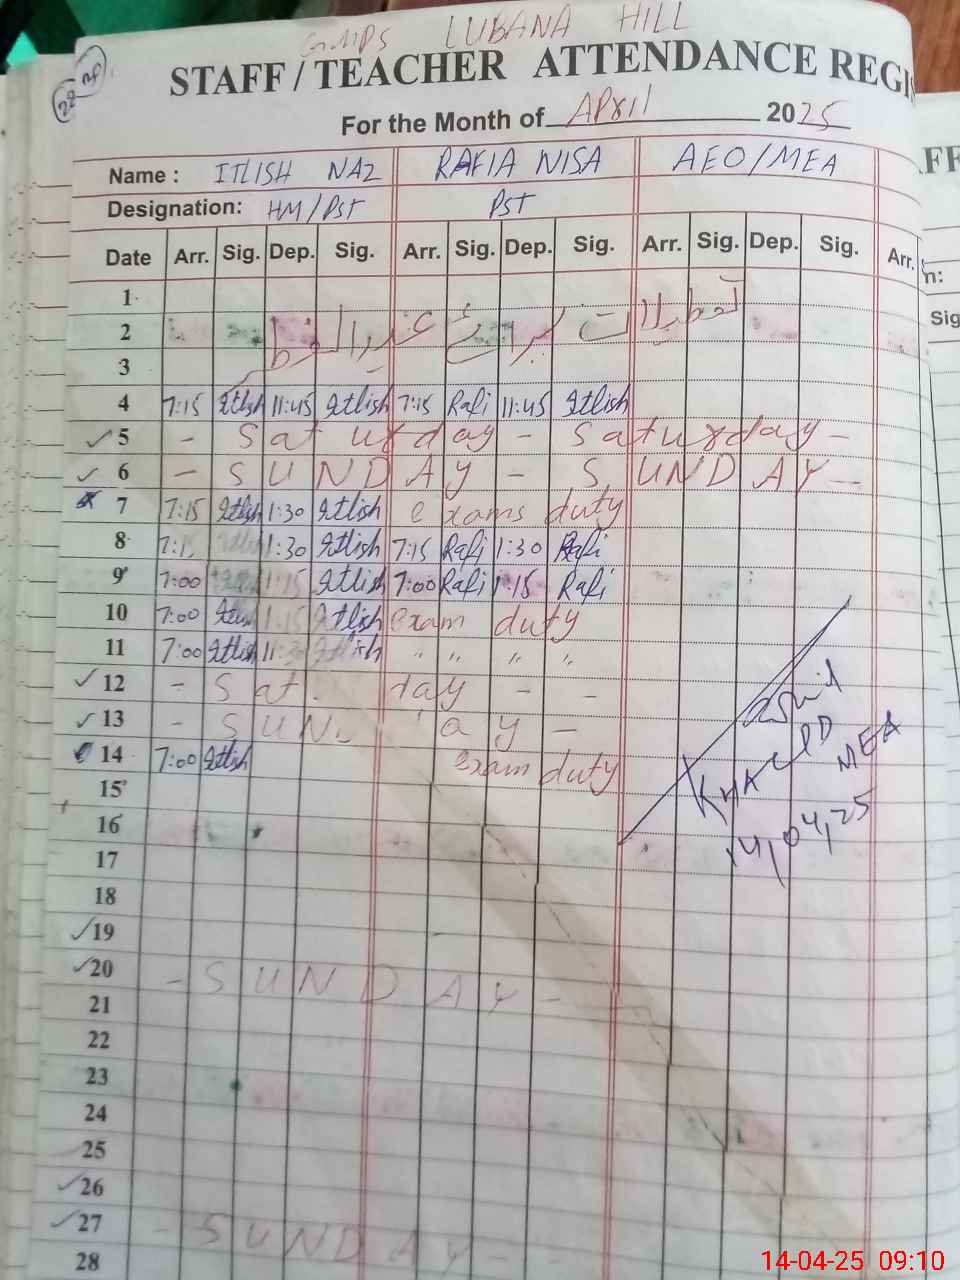 GMPS LUBANA HILL
STAFF / TEACHER ATTENDANCE REGIS
For the Month of April 2025
Name : ITLISH NAZ RAFIA NISA AEO/MEA
Designation: HM/PST PST
Date Arr. Sig. Dep. Sig. Arr. Sig. Dep. Sig. Arr. Sig. Dep. Sig. Arr.
1
2 تعطیلات برائے عید الفطر
3
4 7:15 Itlish 11:45 Itlish 7:15 Rafi 11:45 Itlish
5 - Saturday - Saturday -
6 - SUNDAY - SUNDAY -
7 7:15 Itlish 1:30 Itlish exams duty
8 7:15 Itlish 1:30 Itlish 7:15 Rafi 1:30 Rafi
9 7:00 1:15 Itlish 7:00 Rafi 1:15 Rafi
10 7:00 Itlish 1:15 Itlish exam duty
11 7:00 Itlish 11:30 Itlish " " " "
12 - Sat. day - -
13 - SUN. ay -
14 7:00 Itlish exam duty
KHALID
MEA
14,04,25
15
16
17
18
19
20 - SUNDAY -
21
22
23
24
25
26
27 - SUNDAY -
28
14-04-25 09:10